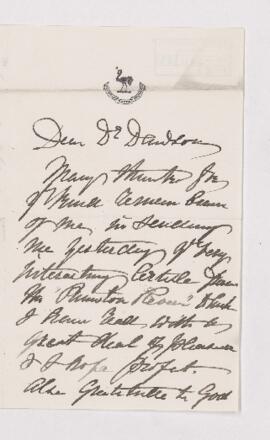 Dear Dr Davidson
Many thanks for
yr kind remembrance
of me in sending
me yesterday yr very
interesting Article from
the "Princeton Review" which
I have read with a
great deal of pleasure
& I hope profit.
Also Gratitude to God